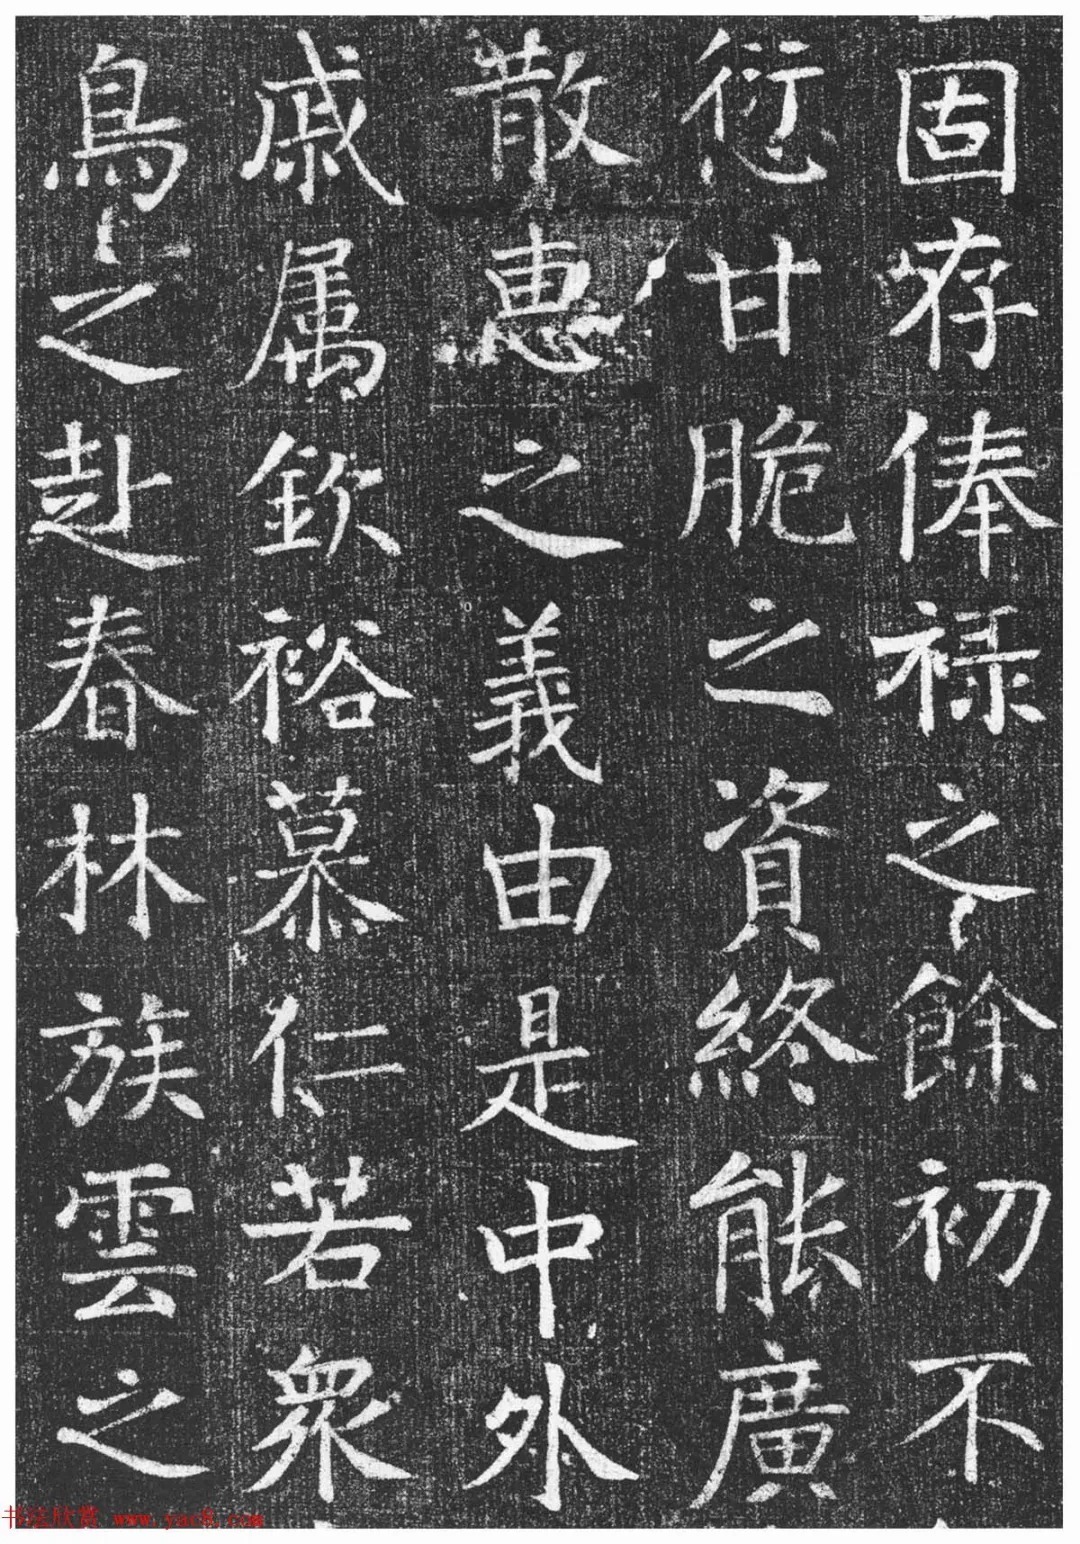 固存俸禄之餘初不
愆甘脆之資終能廣
散惠之義由是中外
戚属欽裕慕仁若衆
鳥之赴春林族雲之
书法欣赏 www.yac8.com